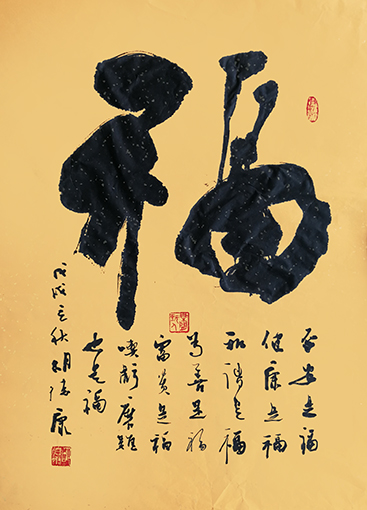 福
平安是福
健康是福
和谐是福
为善是福
富贵是福
喫虧磨難
也是福
戊戌立秋胡
康